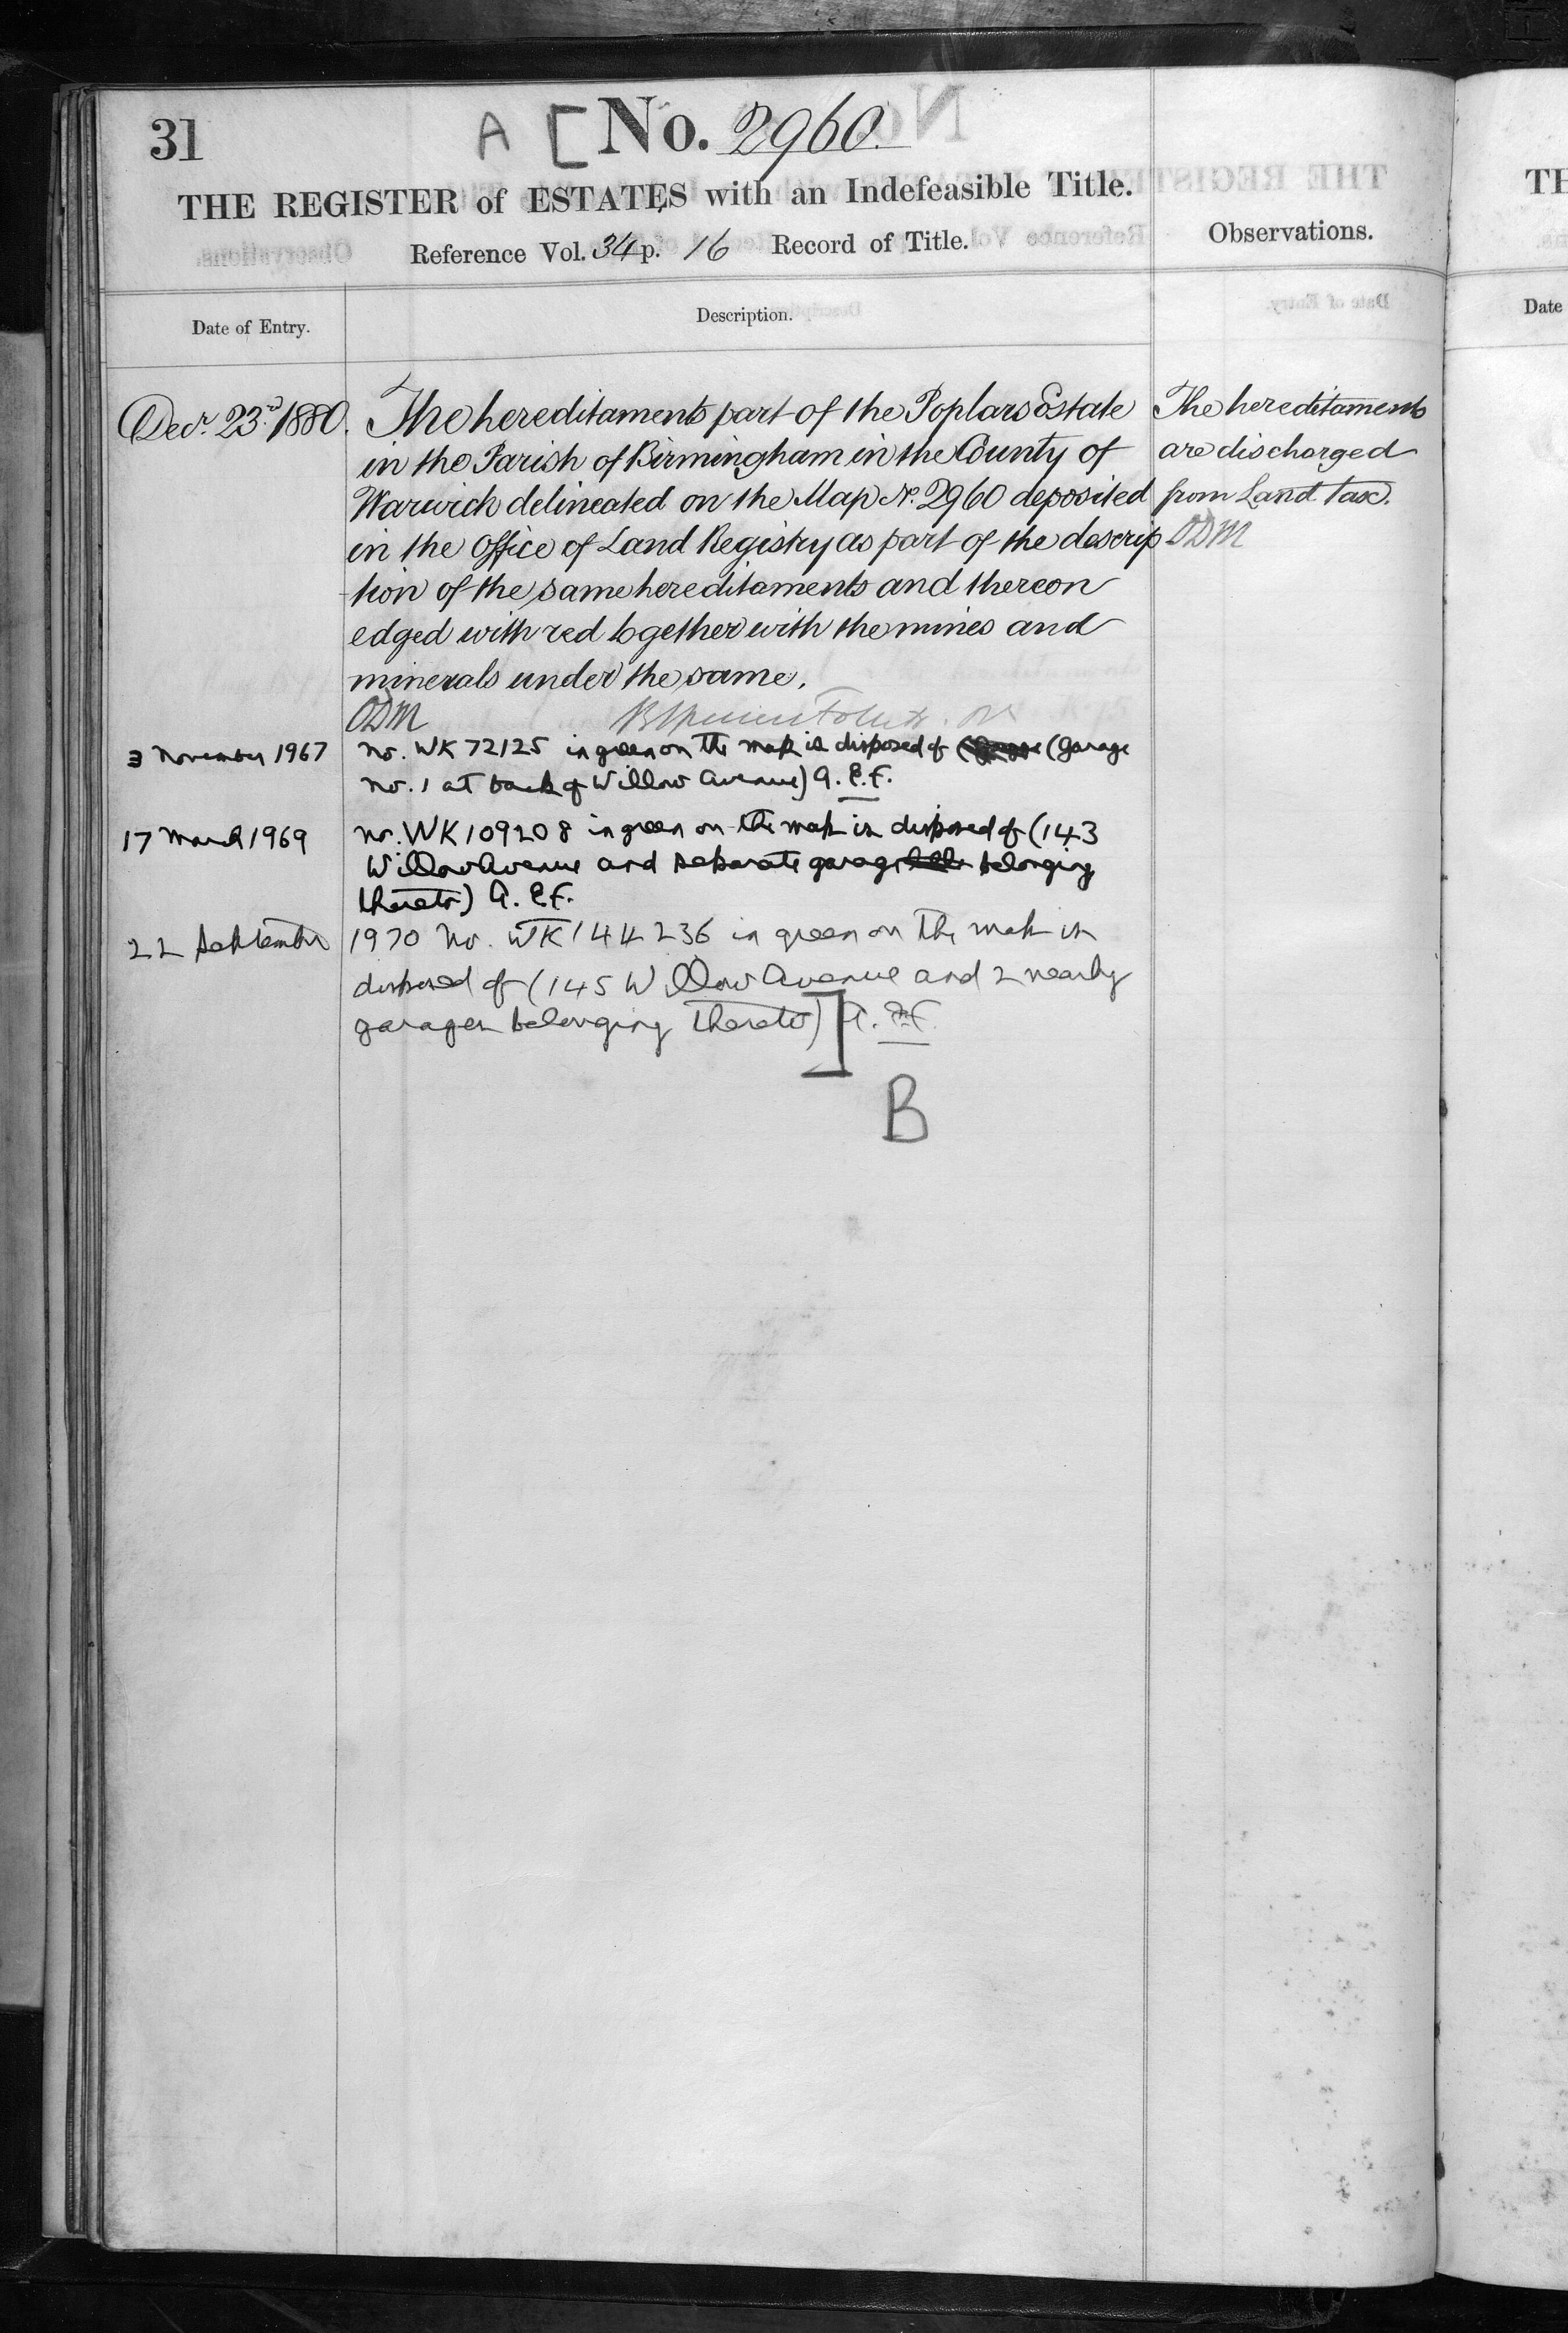 31
A [ No. 2960.
THE REGISTER of ESTATES with an Indefeasible Title.
Reference Vol. 34 p. 16 Record of Title.
Observations.
Date of Entry.
Description.
Decr. 23rd 1880. The hereditaments part of the Poplars Estate
in the Parish of Birmingham in the County of
Warwick delineated on the Map No. 2960 deposited
in the Office of Land Registry as part of the descrip
tion of the same hereditaments and thereon
edged with red together with the mines and
minerals under the same.
ODM
The hereditaments
are discharged
from Land Tax.
ODM
3 November 1967 No. WK 72125 in green on the map is disposed of (Garage
No. 1 at back of Willow Avenue) A. E.F.
17 March 1969 No. WK109208 in green on the map is disposed of (143
Willow Avenue and separate garage belonging
thereto) A. E.F.
22 September 1970 No. WK144236 in green on the map is
disposed of (145 Willow Avenue and 2 nearby
garages belonging thereto) ] A. E.F.
B
TH
Date